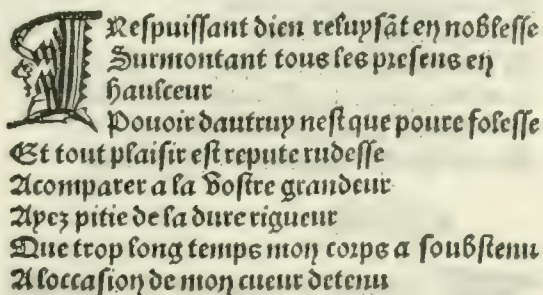 TRespuissant dieu resuysãt en noblesse
Surmontant tous les presens en
haulceur
Pouoir dautruy nest que poure folesse
Et tout plaisir est repute rudesse
Acomparer a la vostre grandeur
Ayez pitie de la dure rigueur
Que trop long temps mon corps a soubstenu
A loccasion de mon cueur detenu